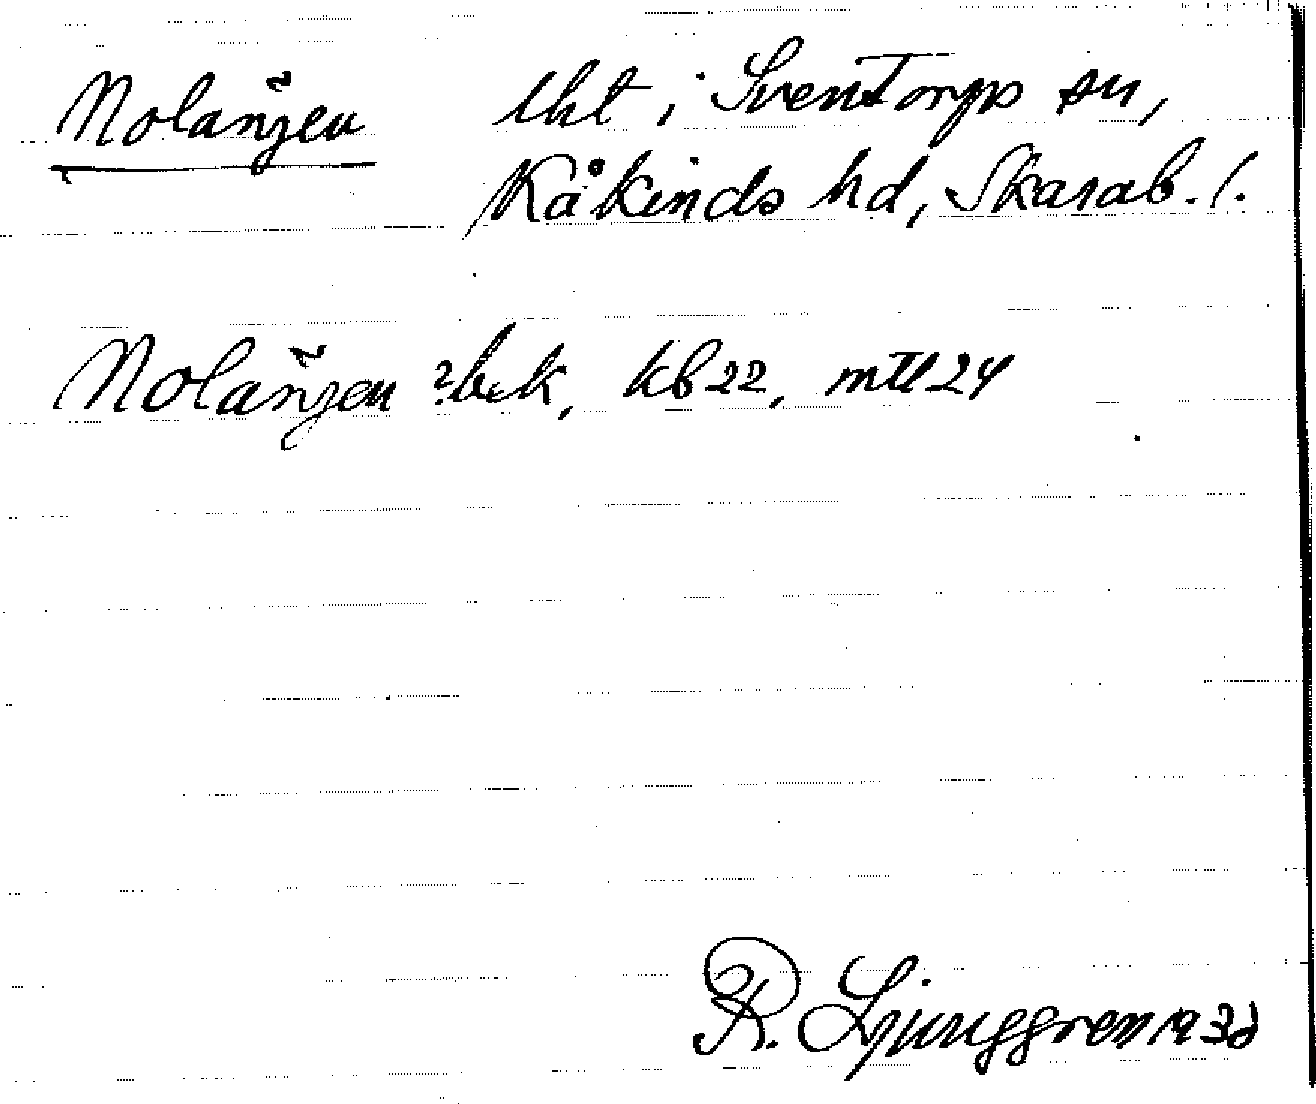 Nolänjen lht i Sventorps sn,
Kåkinds hd, Skarab. l.
Nolänjen ?bek, kb 22, mtl 24
R. Ljunggren 193